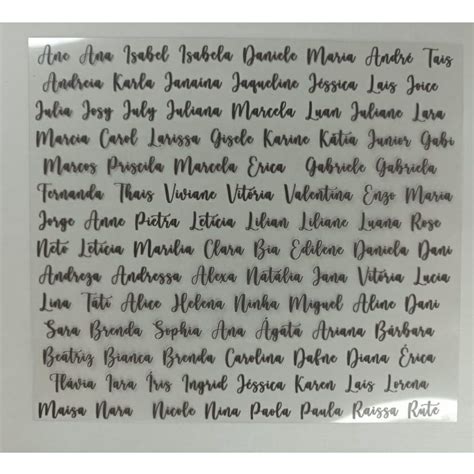 Ane Ana Isabel Isabela Daniele Maria André Tais
Andreia Karla Janaina Jaqueline Jéssica Lais Joice
Julia Josy July Juliana Marcela Luan Juliane Lara
Marcia Carol Larissa Gisele Karine Kátia Junior Gabi
Marcos Priscila Marcela Erica Gabriele Gabriela
Fernanda Thais Viviane Vitória Valentina Enzo Maria
Jorge Anne Pietra Letícia Lilian Liliane Luana Rose
Neto Letícia Marilia Clara Bia Edilene Daniela Dani
Andreza Andressa Alexa Natália Jana Vitória Lucia
Lina Tati Alice Helena Ninha Miguel Aline Dani
Sara Brenda Sophia Ana Ágata Ariana Bárbara
Beatriz Bianca Brenda Carolina Dafne Diana Érica
Flávia Iara Íris Ingrid Jéssica Karen Lais Lorena
Maisa Nara Nicole Nina Paola Paula Raissa Rute